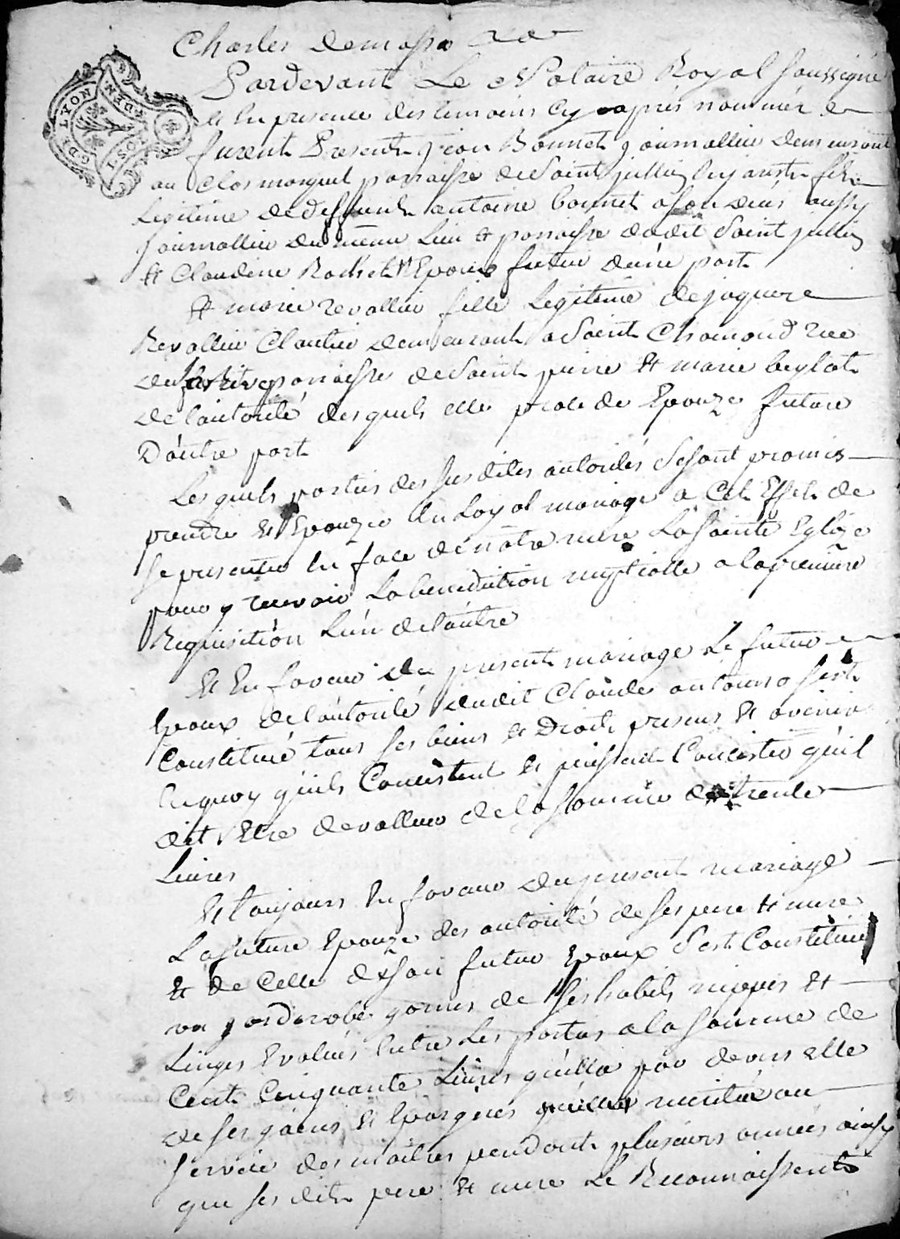 Charles demassa
GDE LYON
DEN POST
Pardevant Le Notaire Royal Soussigné
et En presence des temoins Cy après nommé
furent Presents jean Bonnet journallier demeurant
au Clos marquet parroisse de Saint jullien En jarest fils
Legitime de deffunt antoine bonnet a son deces aussy
journallier du meme Lieu & parroisse dudit Saint jullien
& Claudine Epoux futur d'une part
& marie revollier fille Legitime de jaques
Revollier Cloutier demeurant a Saint Chamond rue
parroisse de Saint pierre & marie
de l'autorité desquels elle procede Epouze future
D'autre part
Lesquels parties des susdites autorités se sont promis
prendre & Epouzer En Loyal mariage a Cet Effet de
se presenter En face de nôtre mere La Sainte Eglize
pour y recevoir La benediction nuptialle a la premiere
Requisition L'un de l'autre
Et En faveur du present mariage Le futur
Epoux de l'autorité dudit Claude s'est
Constitué tous ses biens & Droits presens & avenir
En quoy qu'ils Consistent & puissent Consister qu'il
dit Etre de valleur de la somme de trente
Livres
Et toujours En faveur du present mariage
La future Epouze des autorité de ses pere & mere
& de Celle de son futur Epoux s'est Constituée
un garderobe garnis de ses habits nippes &
Linges Evalués Entre Les parties a la somme de
Cent Cinquante Livres qu'elle a par devers elle
de ses gains & Epargnes au
service des maitres pendant plusieurs années ainsy
que ses dits pere & mere Le Reconnaissent